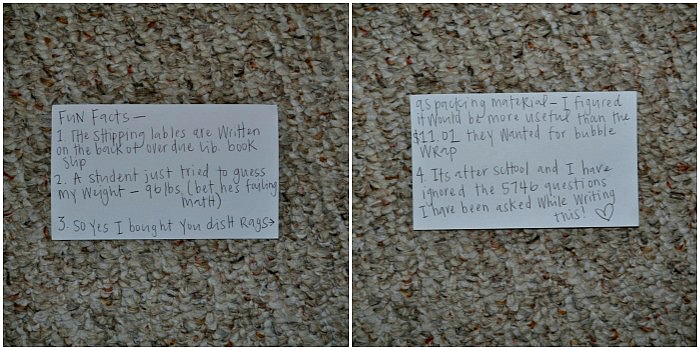 FUN Facts —
1. The shipping lables are written
on the back of overdue lib. book
slip
2. A student just tried to guess
my weight — 96 lbs (bet he's fayling
math)
3. So yes I bought you dish Rags→
as packing material — I figured
it would be more useful than the
$11.01 they wanted for bubble
wrap
4. Its after school and I have
ignored the 5746 questions
I have been asked while writing
this! ♡